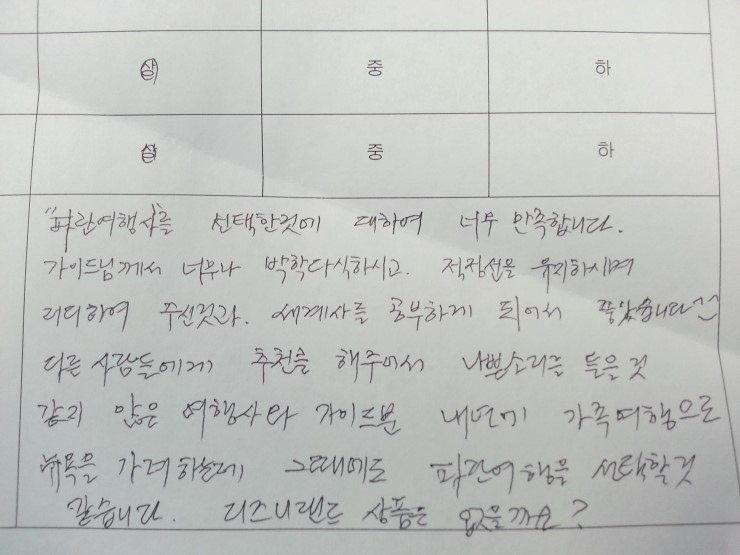 상 중 하
상 중 하
"파란여행사"를 선택한것에 대하여 너무 만족합니다.
가이드님께서 너무나 박학다식하시고. 적정선을 유지하시며
리더하여 주신것과. 세계사를 공부하게 되어서 좋았습니다^^
다른 사람들에게 추천을 해주어서 나쁜소리를 들을 것
같지 않은 여행사와 가이드분 내년에 가족여행으로
뉴욕을 가려하는데 그때에도 파란여행을 선택할것
같습니다. 디즈니랜드 상품은 없을까요?